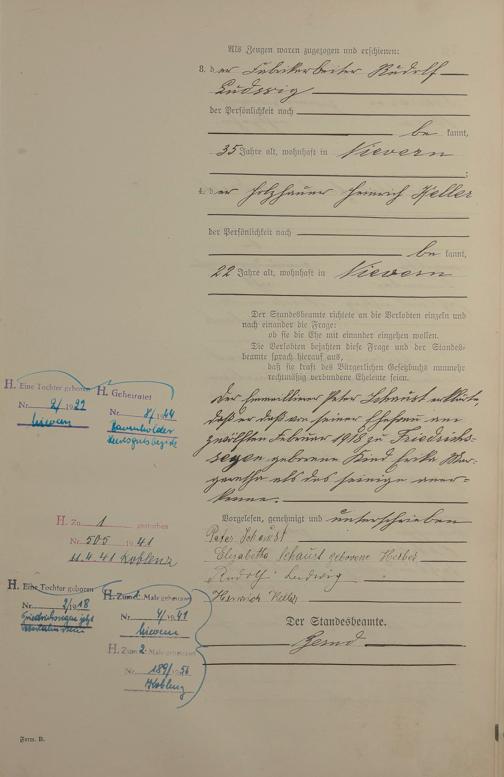 Als Zeugen waren zugezogen und erschienen:
3. der Fabrikarbeiter Rudolf
Ludwig
der Persönlichkeit nach
be kannt,
35 Jahre alt, wohnhaft in Nievern
;
4. der Holzhauer Heinrich Keller
der Persönlichkeit nach
be kannt,
22 Jahre alt, wohnhaft in Nievern
Der Standesbeamte richtete an die Verlobten einzeln und
nach einander die Frage:
ob sie die Ehe mit einander eingehen wollen.
Die Verlobten bejahten diese Frage und der Standes-
beamte sprach hierauf aus,
daß sie kraft des Bürgerlichen Gesetzbuchs nunmehr
rechtmäßig verbundene Eheleute seien.
Der Peter Schaust erklärte,
daß er das von seiner Ehefrau am
zwölften Februar 1918 zu Friedrichs-
segen geborene Kind Mar-
garetha als das seinige aner-
kenne.
Vorgelesen, genehmigt und unterschrieben
Peter Schaust
Elisabetha Schaust geborene Keller
Rudolf Ludwig
Heinrich Keller
Der Standesbeamte.
H. Eine Tochter geboren
Nr. 2/1921
Nievern
H. Geheiratet
Nr. 8/1944
H. Zu 1 gestorben
Nr. 505 41
11.4.41 Koblenz
H. Eine Tochter geboren
Nr. 2/1918
Friedrichssegen jetzt
H. Zum Male geheiratet
Nr. 4/1941
Nievern
H. Zum 2. Male geheiratet
Nr. 189/56
Koblenz
Form. B.